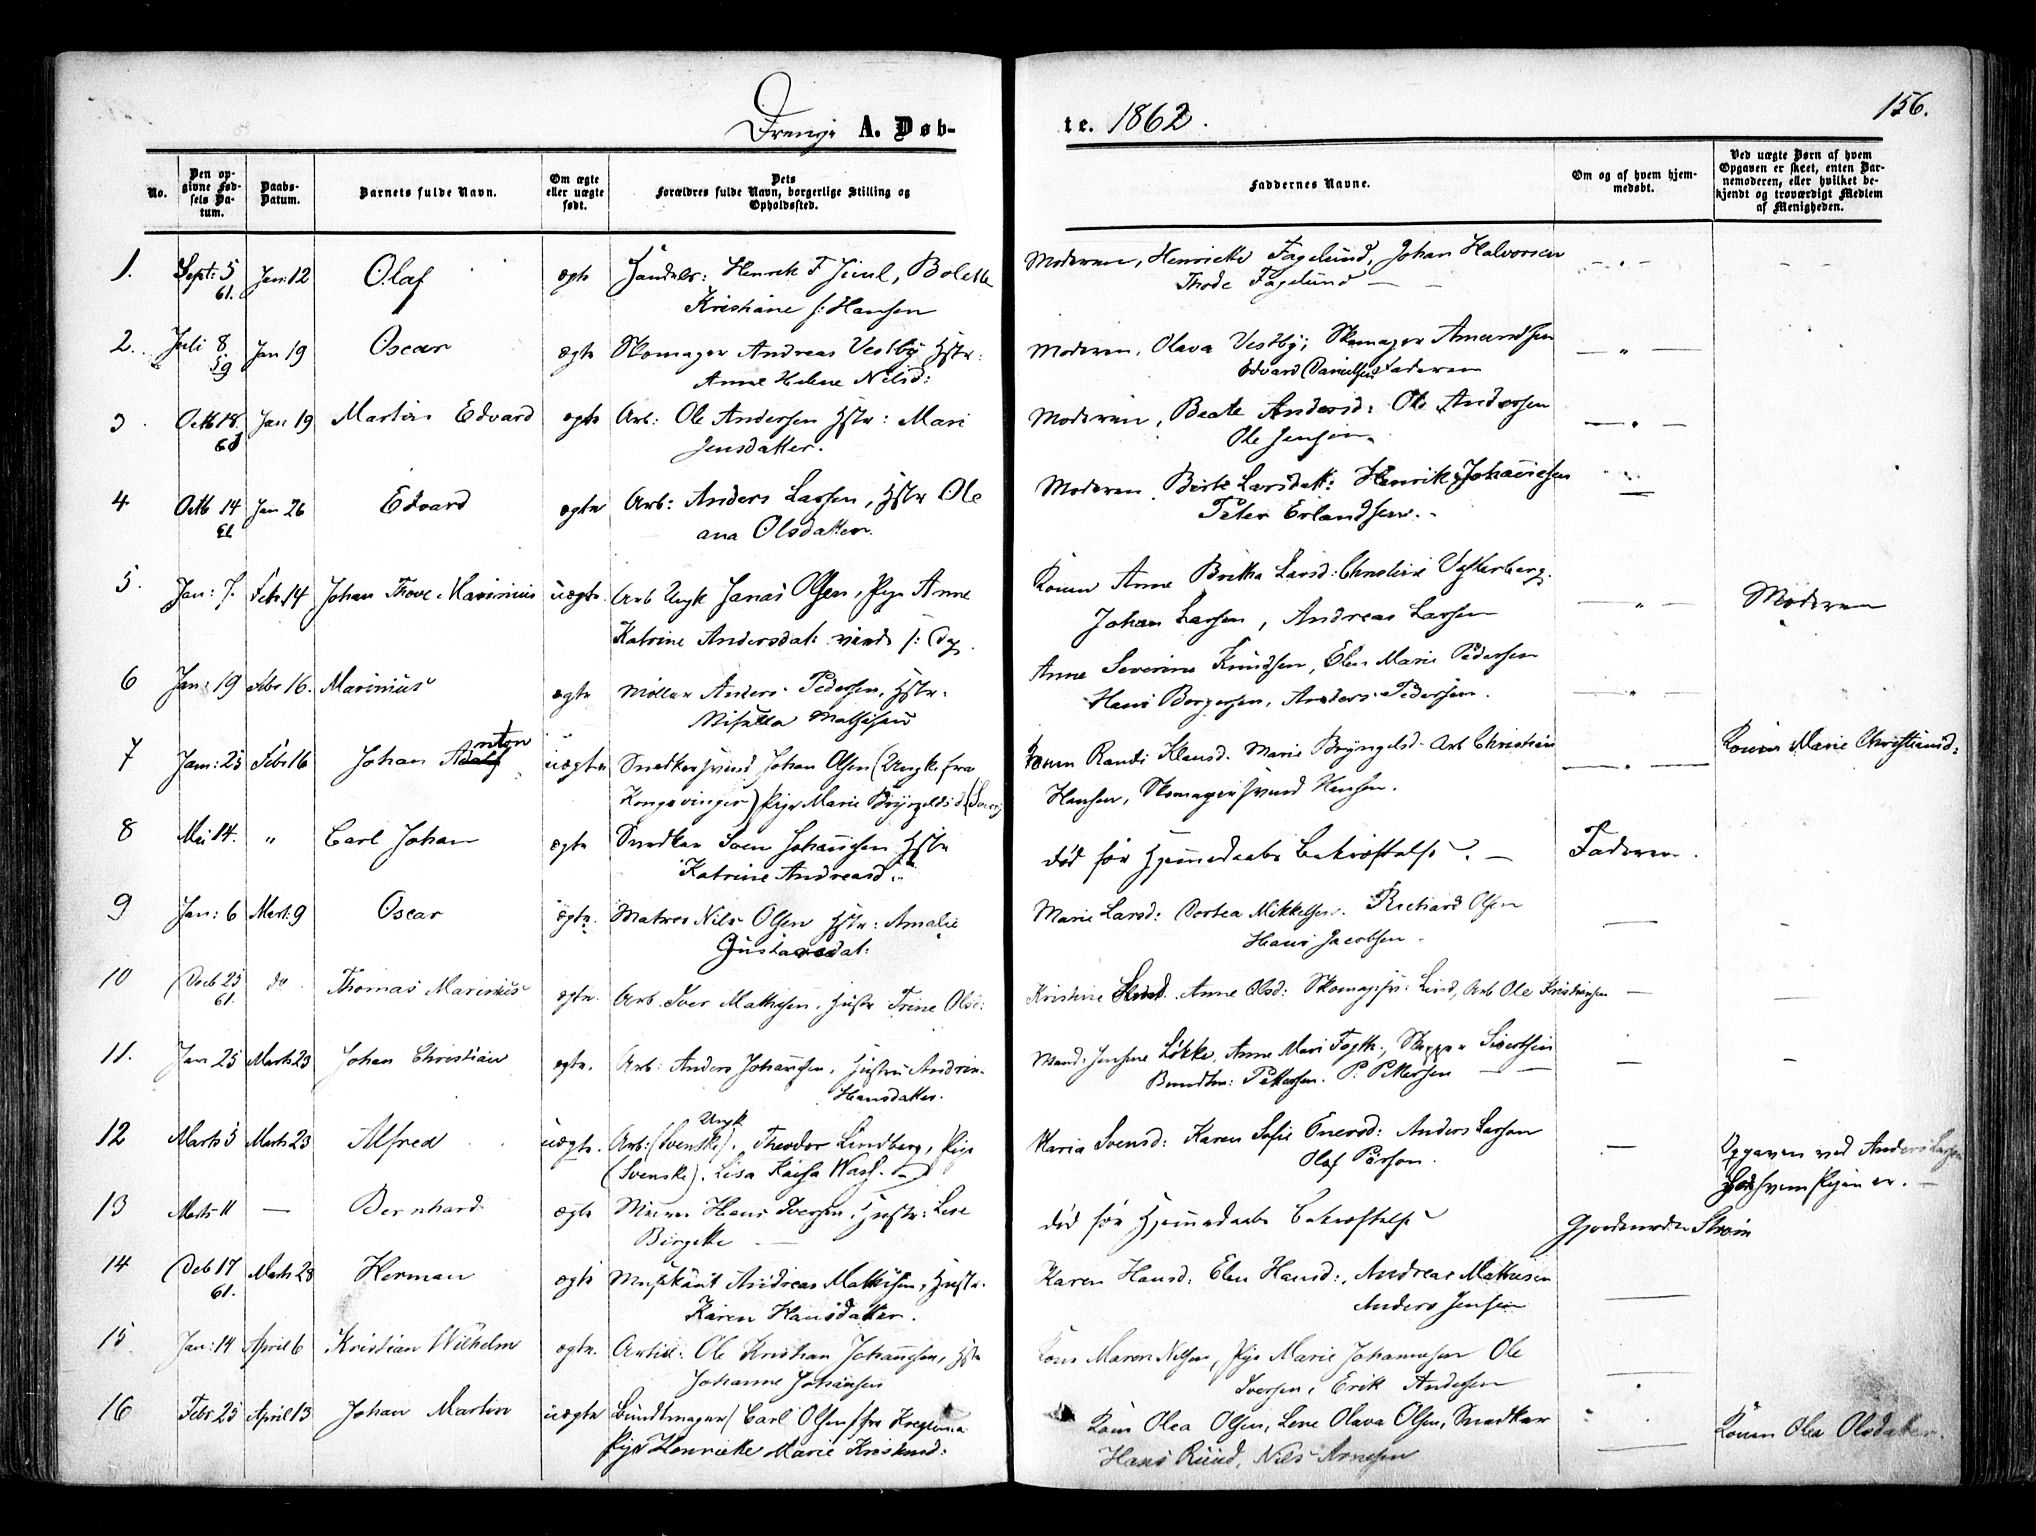 Drenge A. Døb-
te. 1862.
156.
No.
Den op-
givne Fød-
sels Da-
tum.
Daabs-
Datum.
Barnets fulde Navn.
Om ægte
eller uægte
født.
Dets
Forældres fulde Navn, borgerlige Stilling og
Opholdssted.
Faddernes Navne.
Om og af hvem hjem-
medøbt.
Ved uægte Børn af hvem
Opgaven er skeet, enten Bar-
nemoderen, eller hvilket be-
kjendt og troværdigt Medlem
af Menigheden.
1. Sept: 5 Jan: 12 Olaf ægte Handels: Henrik F Juul, Bolette Moderen, Henriette Fagelund, Johan Halvorsen
61. Kristiane f: Hansen Thode Fagelund
2. Juli 8 Jan 19 Oscar ægte Skomager Andreas Vestby Hstr: Moderen, Olava Vestby, Skomager Amundsen
59 Anne Helene Nilsd: Edvard Danielsen Faderen
3. Octb 18. Jan 19 Martin Edvard ægte Arb: Ole Andersen Hstr: Mari Moderen, Beate Andersd: Ole Andersen
61 Jensdatter. Ole Jensen
4 Octb 14 Jan 26 Edvard ægte Arb: Anders Larsen, Hstr Ole Moderen Birte Larsdatt: Henrik Johannesen
61 ana Olsdatter. Peter Erlandsen.
5. Jan: 7. Febr. 14 Johan Thove Marinius uægte. Arb Ungk Jonas Olsen, Pige Anne Konen Anne Britha Larsd: Christine Vesterberg. Moderen
Katrine Andersdat: Johan Larsen, Andreas Larsen
6 Jan: 19 Febr 16. Marinius ægte Møller Anders Pedersen, Hstr. Anne Severine Knudsen, Elen Marie Pedersen
Mathisen Hans Borgersen, Anders Pedersen.
7 Jan: 25 Febr 16 Johan Adolf nton uægte Snedkersvend Johan Olsen (Ungk. fra Konen Randi Klausd. Marie Bryngelsd. Arb Christian Konen Marie Christiansd:
Kongsvinger) Pige Marie Bryngelsd Hansen, Skomagersvend Hansen.
8 14. " Carl Johan ægte Snedker Sven Johannesen Hstr død før Hjemmedaabs Bekræftelse. Faderen.
Katrine Andreasd.
9 Jan: 6 Mart: 9 Oscar ægte. Matros Nils Olsen Hstr: Amalie Marie Larsd: Dortea Mikkelsen. Richard Olsen
Gustavsdat: Hans Jacobsen.
10 Decb 25 do Thomas Marinius ægte. Arb. Iver Mathisen, Hustr Trine Olsd: Kristine Anne Olsd: Skomagsv: Lind, Arb Ole Kristiansen
61.
11. Jan 25 Marts 23 Johan Christian ægte. Arb: Anders Johannesen, Hustru Andrine Løkke, Anne Mari Skipper Sivertsen
Hansdatter. Bundtm: Pettersen. P. Pettersen
12 Marts 5 Marts 23 Alfred uægte. Arb: (Svenske). Ungk Theodor Lindberg, Pige Maria Svensd: Karen Sofie Anders Larson Opgaven ved Anders Larsen
(Svenske). Lisa Kaisa Olaf Person. hos hvem Pigen er.
13 Marts 11 — Bernhard ægte Murer Hans Iversen, Hustr: Lise død før Hjemmedaabs Bekræftelse Gjordemoder Strøm
Birgitte
14 Decb 17 Marts 23 Herman ægte Musikant Andreas Mathisen, Hustr. Karen Hansd: Elen Hansd:, Andreas Mathisen
61. Karen Hansdatter. Anders Jensen
15 Jan: 14 April 6 Kristian Wilhelm ægte. Ole Kristian Johannesen, Hstr Kone Maren Nilsen, Pige Marie Johannesen Ole
Johanne Johansen Iversen, Erik Andersen
16 Febr. 25 April 13 Johan Martin uægte Bundtmager Carl Olsen Kone Olea Olsen, Lene Olava Olsen, Snedker Konen Olea Olsdatter.
Pige Henriette Marie Hans Ruud, Nils Arnesen